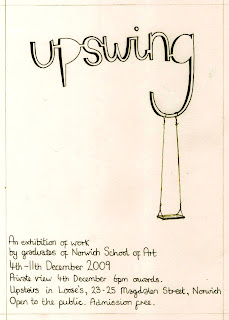 upswing
An exhibition of work
by graduates of Norwich School of Art
4th-11th December 2009
Private view 4th December 6pm onwards.
Upstairs in Loose's, 23-25 Magdalen Street, Norwich
Open to the public. Admission free.